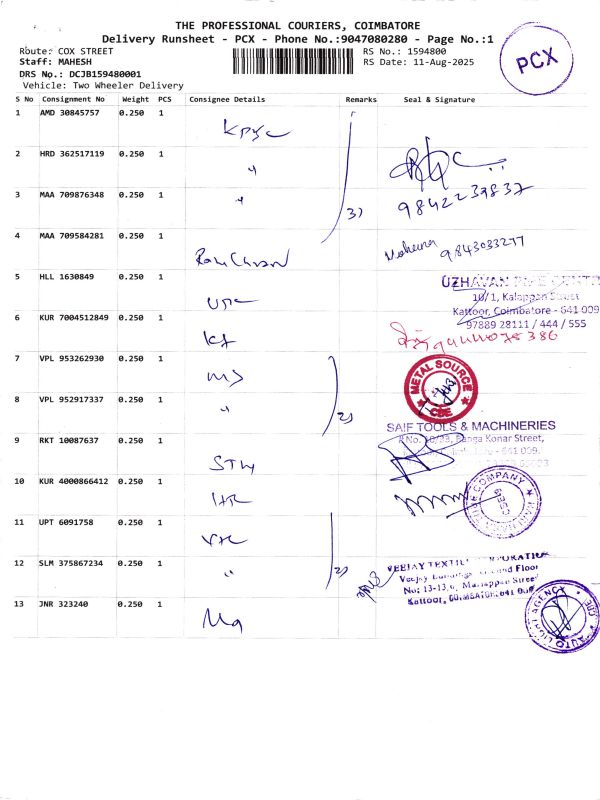 THE PROFESSIONAL COURIERS, COIMBATORE
Delivery Runsheet - PCX - Phone No.:9047080280 - Page No.:1
Route: COX STREET
RS No.: 1594800
Staff: MAHESH
RS Date: 11-Aug-2025
DRS No.: DCJB159480001
Vehicle: Two Wheeler Delivery
PCX
S No Consignment No Weight PCS Consignee Details Remarks Seal & Signature
1 AMD 30845757 0.250 1
2 HRD 362517119 0.250 1 "
3 MAA 709876348 0.250 1 " 3)
9842239837
4 MAA 709584281 0.250 1
9843033277
5 HLL 1630849 0.250 1
UZHAVAN PIPE CENTRE
10/1, Kalappan Street
Kattoor, Coimbatore - 641 009
97889 28111 / 444 / 555
6 KUR 7004512849 0.250 1
7 VPL 953262930 0.250 1 MS
METAL SOURCE
CBE
8 VPL 952917337 0.250 1 " 2)
SAIF TOOLS & MACHINERIES
Ranga Konar Street,
641 009.
9 RKT 10087637 0.250 1
10 KUR 4000866412 0.250 1
COMPANY
11 UPT 6091758 0.250 1
12 SLM 375867234 0.250 1 " 2)
VEEJAY TEXTILE CORPORATION
Veejay Buildings, Second Floor
No: 13-13, Mariappan Street
Kattoor, COIMBATORE-641 009
13 JNR 323240 0.250 1
AUTO LIGHT AGENCY
CBE